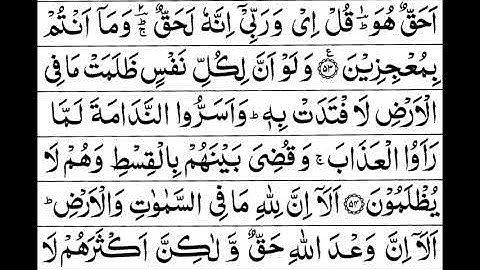 اَحَقٌّ هُوَ ؕ قُلْ اِیْ وَ رَبِّیْۤ اِنَّهٗ لَحَقٌّ ۚؕ وَ مَاۤ اَنْتُمْ
بِمُعْجِزِیْنَ ﴿۵۳﴾ وَ لَوْ اَنَّ لِكُلِّ نَفْسٍ ظَلَمَتْ مَا فِی
الْاَرْضِ لَا فْتَدَتْ بِهٖ ؕ وَ اَسَرُّوا النَّدَامَةَ لَمَّا
رَاَوُا الْعَذَابَ ۚ وَ قُضِیَ بَیْنَهُمْ بِالْقِسْطِ وَ هُمْ لَا
یُظْلَمُوْنَ ﴿۵۴﴾ اَلَاۤ اِنَّ لِلّٰهِ مَا فِی السَّمٰوٰتِ وَ الْاَرْضِ ؕ
اَلَاۤ اِنَّ وَعْدَ اللّٰهِ حَقٌّ وَّ لٰكِنَّ اَكْثَرَهُمْ لَا